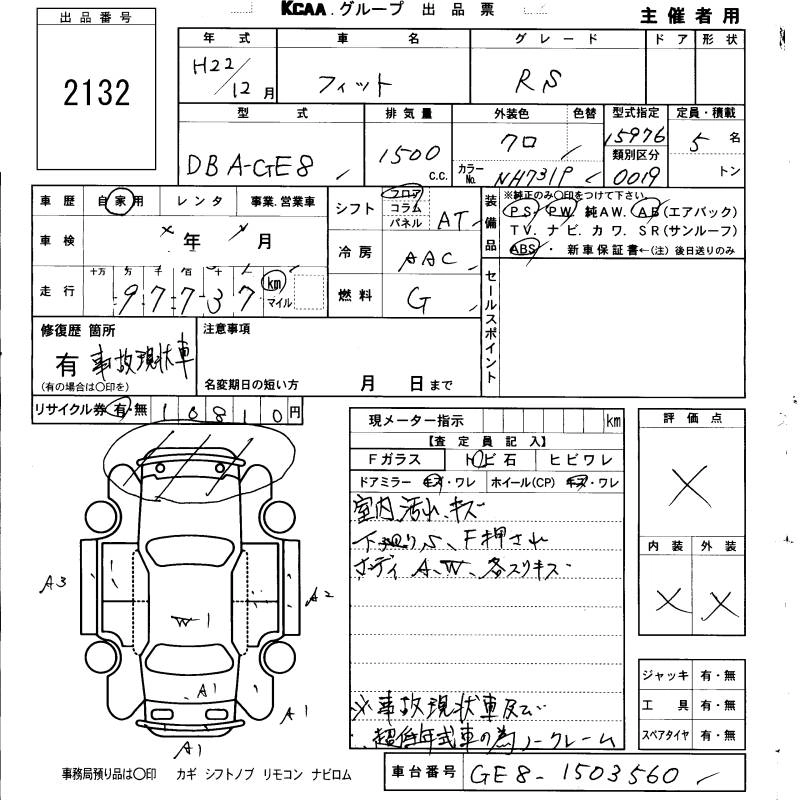 KCAA.グループ 出品票
主催者用
出品番号
2132
年式 車名 グレード ドア 形状
H22/12月 フィット RS
型式 排気量 外装色 色替 型式指定 定員・積載
DBA-GE8 1500 c.c. クロ 15976 5名
カラーNo. NH731P 類別区分 0019 トン
車歴 自家用 レンタ 事業.営業車
車検 × 年 月
走行 十万 万 千 百 十 一 97737 km マイル
シフト フロア コラム パネル AT
冷房 AAC
燃料 G
装備品
※純正のみ〇印をつけて下さい
PS・PW 純AW.AB(エアバック)
TV.ナビ.カワ.SR(サンルーフ)
ABS・新車保証書←(注)後日送りのみ
セールスポイント
修復歴 箇所
有 事故現状車
(有の場合は〇印を)
注意事項
名変期日の短い方 月 日まで
リサイクル券 有・無 10810円
現メーター指示 km
【査定員記入】
Fガラス トビ石 ヒビワレ
ドアミラー キズ・ワレ ホイール(CP) キズ・ワレ
室内汚れ、キズ
下廻りS、F押され
ボディA、W、各スリキズ
※事故現状車及び
超低年式車の為ノークレーム
評価点
×
内装 外装
× ×
A3
A2
W-1
A1
A1
A1
ジャッキ 有・無
工具 有・無
スペアタイヤ 有・無
事務局預り品は〇印 カギ シフトノブ リモコン ナビロム
車台番号 GE8-1503560